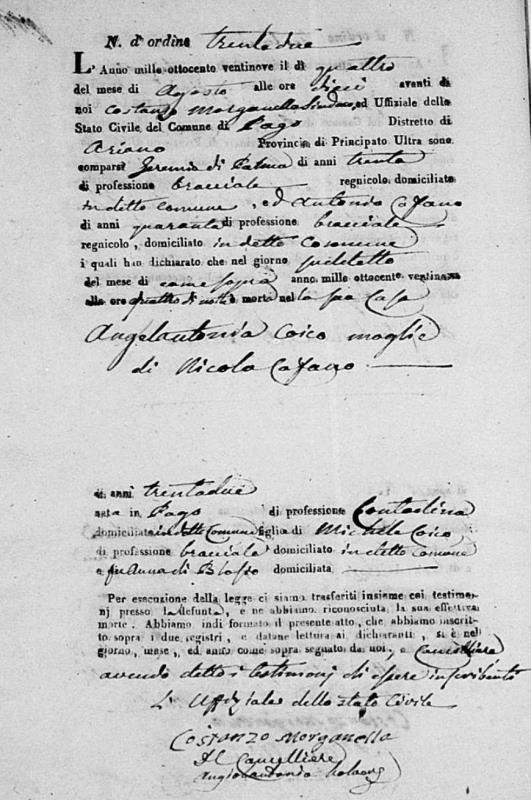 N. d'ordine trentadue
L'Anno mille ottocento ventinove il dì quattro
del mese di Agosto alle ore dieci avanti di
noi Costanzo Morganella Sindaco, ed Uffiziale dello
Stato Civile del Comune di Pago Distretto di
Ariano Provincia di Principato Ultra sono
comparsi Geremia di Palma di anni trenta
di professione bracciale regnicolo domiciliato
in detto comune, ed Antonio Cafano
di anni quaranta di professione bracciale
regnicolo, domiciliato in detto Comune
i quali han dichiarato che nel giorno sudetto
del mese di come sopra anno mille ottocento ventinove
alle ore quattro di notte morta nel la sua Casa
Angelantonia Coico moglie
di Nicola Cafano
di anni trentadue
nata in Pago di professione Contadina
domiciliata in detto Comune figlia di Michele Coico
di professione bracciale domiciliato in detto comune
e fu Anna di Blasio domiciliata
Per esecuzione della legge ci siamo trasferiti insieme coi testimo-
nj presso la defunta, e ne abbiamo riconosciuta la sua effettiva
morte. Abbiamo indi formato il presente atto, che abbiamo inscrit-
to sopra i due registri, e datane lettura ai dichiaranti, si è nel
giorno, mese, ed anno come sopra segnato da noi, e Cancelliere
avendo detto i testimonj di essere inscribenti
L'Uffiziale dello stato Civile
Costanzo Morganella
Il Cancelliere